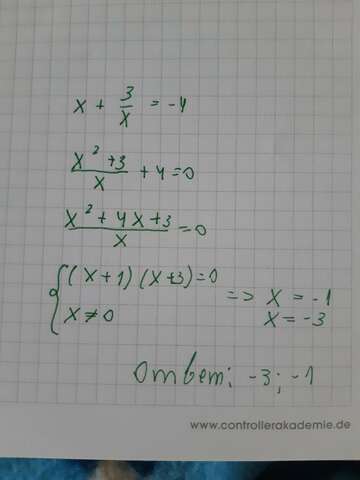 x + 3/x = -4
x² + 3/x + 4 = 0
x² + 4x + 3/x = 0
{ (x+1)(x+3) = 0
x ≠ 0
=> x = -1
x = -3
Ответ: -3; -1
www.controllerakademie.de